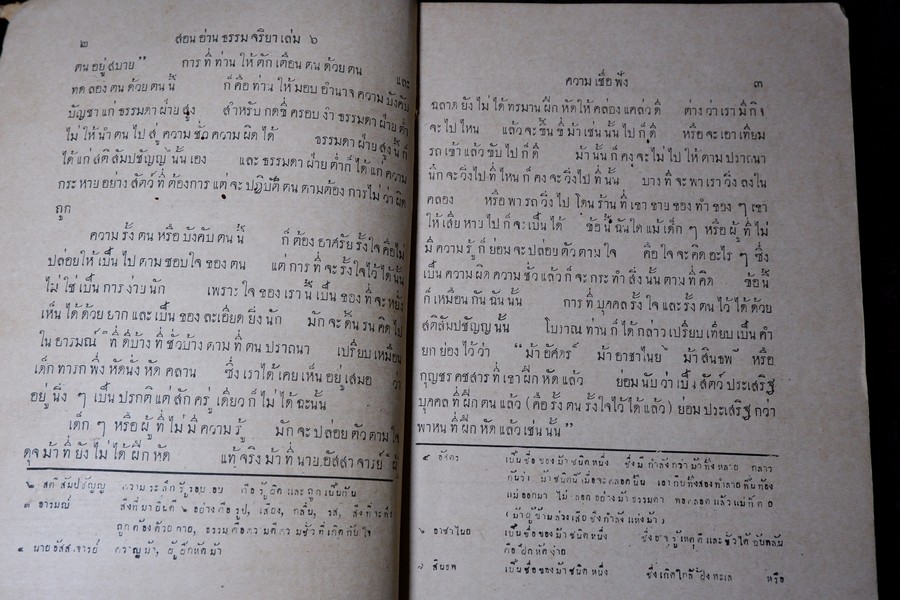 ๒ สอน อ่าน ธรรม จริยา เล่ม ๖
ตน อยู่ สบาย” การ ที่ ท่าน ให้ ตัก เตือน ตน ด้วย ตน และ
ทด ลอง ตน ด้วย ตน นี้ ก็ คือ ท่าน ให้ มอบ อำนาจ ความ บังคับ
บัญชา แก่ ธรรมดา ฝ่าย สูง สำหรับ กดขี่ ครอบ งำ ธรรมดา ฝ่าย ต่ำ
ไม่ ให้ นำ ตน ไป สู่ ความ ชั่ว ความ ผิด ได้ ธรรมดา ฝ่าย สูง นี้ ก็
ได้ แก่ สติ สัมปชัญญ นั้น เอง และ ธรรมดา ฝ่าย ต่ำ ก็ ได้ แก่ ความ
กระหาย อย่าง สัตว์ ที่ ต้องการ แต่ จะ ปฏิบัติ ตน ตาม ต้อง การ ไม่ ว่า ผิด
ถูก
ความ รั้ง ตน หรือ บังคับ ตน นี้ ก็ ต้อง อาศรัย รั้ง ใจ คือ ไม่
ปล่อย ให้ เป็น ไป ตาม ชอบ ใจ ของ ตน แต่ การ ที่ จะ รั้ง ใจ ไว้ ได้ นั้น
ไม่ ใช่ เป็น การ ง่าย นัก เพราะ ใจ ของ เรา นี้ เป็น ของ ที่ จะ หยั่ง
เห็น ได้ ด้วย ยาก และ เป็น ของ ละเอียด ยิ่ง นัก มัก จะ ดิ้น รน คิด ไป
ใน อารมณ์ ๓ ที่ ดี บ้าง ที่ ชั่ว บ้าง ตาม ที่ ตน ปราถนา เปรียบ เหมือน
เด็ก ทารก พึ่ง หัด นั่ง หัด คลาน ซึ่ง เรา ได้ เคย เห็น อยู่ เสมอ ว่า
อยู่ นิ่ง ๆ เป็น ปรกติ แต่ สัก ครู่ เดียว ก็ ไม่ ได้ ฉะนั้น
เด็ก ๆ หรือ ผู้ ที่ ไม่ มี ความ รู้ มัก จะ ปล่อย ตัว ตาม ใจ
ดุจ ม้า ที่ ยัง ไม่ ได้ ฝึก หัด แท้ จริง ม้า ที่ นาย อัสสา จารย์ ๔ ผู้
๒ สติ สัมปชัญญ ความ ระลึก รู้ รอบ คอบ คือ รู้ ผิด และ ถูก เป็นต้น
๓ อารมณ์ สิ่ง ที่ มา ยินดี ๖ อย่าง คือ รูป, เสียง, กลิ่น, รส, สิ่ง ที่ จะ พึง
ถูก ต้อง ด้วย กาย, ธรรม คือ ความ ดี ความ ชั่ว ที่ เกิด กับ ใจ
๔ นาย อัสส จารย์ ควาญ ม้า, ผู้ ฝึก หัด ม้า
ความ เชื่อ ฟัง ๓
ฉลาด ยัง ไม่ ได้ ทรมาน ฝึก หัด ให้ คล่อง แคล่ว ดี ต่าง ว่า เรา มี กิจ
จะ ไป ไหน แล้ว จะ ขึ้น ขี่ ม้า เช่น นั้น ไป ก็ ดี หรือ จะ เอา เทียม
รถ เข้า แล้ว ขับ ไป ก็ ดี ม้า นั้น ก็ คง จะ ไม่ ไป ให้ ตาม ปราถนา
นึก จะ วิ่ง ไป ที่ ไหน ก็ คง จะ วิ่ง ไป ที่ นั้น บาง ที่ จะ พา เรา วิ่ง ลง ใน
คลอง หรือ พา รถ วิ่ง ไป โดน ร้าน ที่ เขา ขาย ของ ทำ ของ ๆ เขา
ให้ เสีย หาย ไป ก็ จะ เป็น ได้ ข้อ นี้ ฉันใด แม้ เด็ก ๆ หรือ ผู้ ที่ ไม่
มี ความ รู้ ก็ ย่อม จะ ปล่อย ตัว ตาม ใจ คือ ใจ จะ คิด อะไร ๆ ซึ่ง
เป็น ความ ผิด ความ ชั่ว แล้ว ก็ จะ กระ ทำ สิ่ง นั้น ตาม ที่ คิด ข้อ นี้
ก็ เหมือน กัน ฉัน นั้น การ ที่ บุคคล รั้ง ใจ และ รั้ง ตน ไว้ ได้ ด้วย
สติสัมปชัญญ นั้น โบราณ ท่าน ก็ ได้ กล่าว เปรียบ เทียบ เป็น คำ
ยก ย่อง ไว้ ว่า “ม้า อัศดร ๕ ม้า อาชาไนย ๖ ม้า สินธพ ๗ หรือ
กุญชร คชสาร ที่ เขา ฝึก หัด แล้ว ย่อม นับ ว่า เป็น สัตว์ ประเสริฐ
บุคคล ที่ ฝึก ตน แล้ว (คือ รั้ง ตน รั้ง ใจ ไว้ ได้ แล้ว) ย่อม ประเสริฐ กว่า
พาหน ที่ ฝึก หัด แล้ว เช่น นั้น”
๕ อัศดร เป็น ชื่อ ของ ม้า ชนิด หนึ่ง ซึ่ง มี กำลัง กว่า ม้า ทั้ง หลาย กล่าว
กันว่า ม้า ชนิด นี้ เมื่อ จะ คลอด นั้น เอา กีบ ทั้ง สอง ทำลาย พื้น ท้อง
แม่ ออก มา ไม่ คลอด อย่าง ม้า ธรรมดา พอ คลอด แล้ว แม่ ก็ ตาย
๖ อาชาไนย เป็น ชื่อ ของ ม้า ชนิด หนึ่ง ซึ่ง อาจ รู้ เหตุ ดี และ ชั่ว ได้ ฉับพลัน
คือ ฝึก หัด ง่าย
๗ สินธพ เป็น ชื่อ ของ ม้า ชนิด หนึ่ง ซึ่ง เกิด ใกล้ ฝั่ง ทะเล หรือ